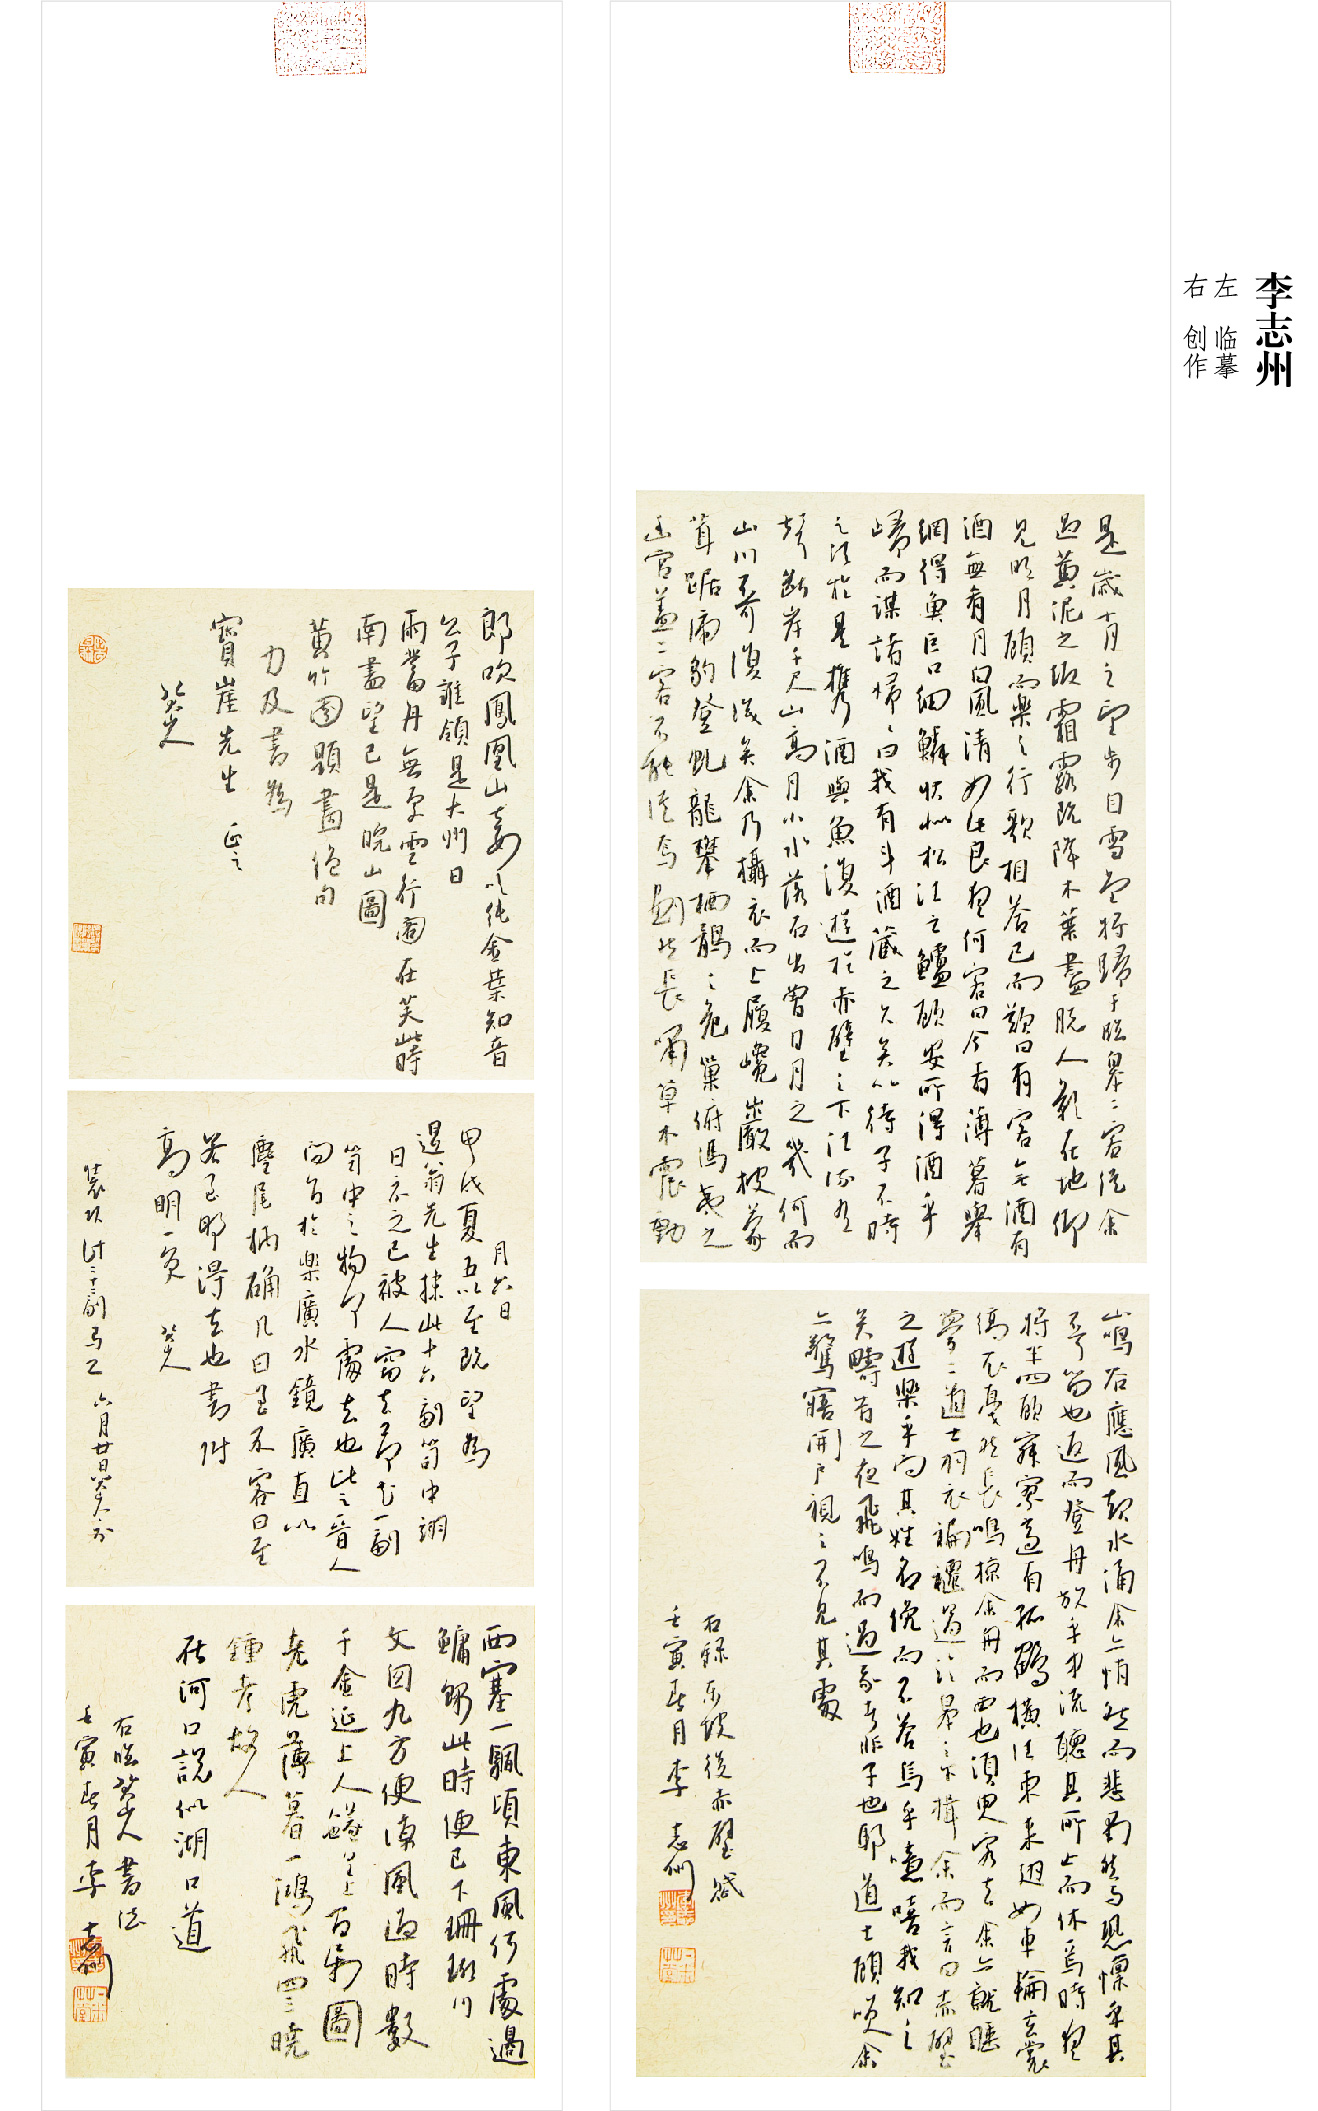 李志州
左 临摹
右 创作
是歲十月之望步自雪堂將歸于臨皋二客從余
過黄泥之坂霜露既降木葉盡脱人影在地仰
見明月顧而樂之行歌相答已而歎曰有客無酒有
酒無肴月白風清如此良夜何客曰今者薄暮舉
網得魚巨口細鱗狀似松江之鱸顧安所得酒乎
歸而謀諸婦婦曰我有斗酒藏之久矣以待子不時
之須於是携酒與魚復遊於赤壁之下江流有
聲斷岸千尺山高月小水落石出曾日月之幾何而
山川不可復識矣余乃攝衣而上履巉巖披蒙
茸踞虎豹登虬龍攀栖鶻之危巢俯馮夷之
幽宫蓋二客不能從焉劃然長嘯草木震動
山鳴谷應風起水涌余亦悄然而悲肅然而恐凛乎其
不可留也返而登舟放乎中流聽其所止而休焉時夜
將半四顧寂寥適有孤鶴横江東來翅如車輪玄裳
縞衣戛然長鳴掠余舟而西也須臾客去余亦就睡
夢二道士羽衣蹁躚過臨皋之下揖余而言曰赤壁
之遊樂乎問其姓名俛而不答嗚乎噫嘻我知之
矣疇昔之夜飛鳴而過我者非子也耶道士顧笑余
亦驚寤開户視之不見其處
右録東坡後赤壁賦
壬寅春月李志州
郎吹鳳凰山妾以純金葉知音
公子誰領是大州日
雨當丹無
南盡望已是晥山圖
黄竹園題畫絶句
力及書爲
寶崖先生 正之
八大山人
月六日
甲戌夏五以至既望爲
退翁先生抹此十六副筒中翊
日示之已被人竊去四五副
筒中之物何處去也比之晉人
問旨於樂廣水鏡廣直以
麈尾柄确几曰至不客曰至
若至那得去也書附
高明一笑 八大山人
六月廿日八大山人
西塞一颿頃東風何處過
鱅魳此時便已下珊瑚川
文图九方便凍風過時數
千金延上人
堯虎薄暮一鴻飛四三曉
鍾孝故人
在河口説似湖口道
右臨八大山人書法
壬寅春月李志州